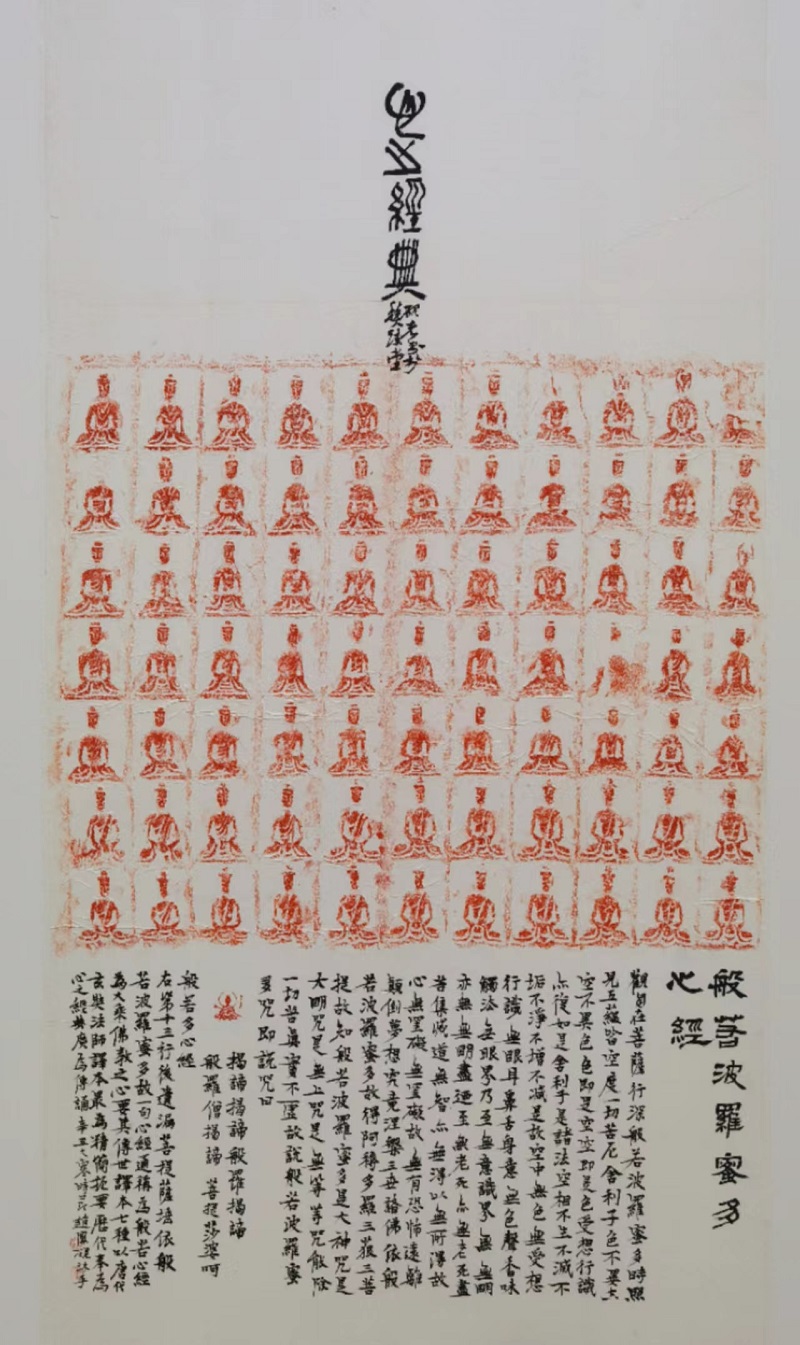 心之經典
般若波羅蜜多
心經
觀自在菩薩行深般若波羅蜜多時照
見五蘊皆空度一切苦厄舍利子色不異空
空不異色色即是空空即是色受想行識
亦復如是舍利子是諸法空相不生不滅不
垢不淨不增不減是故空中無色無受想
行識無眼耳鼻舌身意無色聲香味
觸法無眼界乃至無意識界無無明
亦無無明盡廼至無老死亦無老死盡
苦集滅道無智亦無得以無所得故
心無罣礙無罣礙故無有恐怖遠離
顛倒夢想究竟涅槃三世諸佛依般
若波羅蜜多故得阿耨多羅三藐三菩
提故知般若波羅蜜多是大神咒是
大明咒是無上咒是無等等咒能除
一切苦真實不虛故說般若波羅蜜
多咒即說咒曰
揭諦揭諦般羅揭諦
般羅僧揭諦 菩提莎婆呵
般若多心經
右第十三行後遺漏菩提薩埵依般
若波羅蜜多故一句心經通稱為般若心經
為大乘佛教之心要其傳世譯本七種以唐代
玄奘法師譯本最為精簡扼要歷代奉為
心之經典廣為傳誦辛丑大寒時